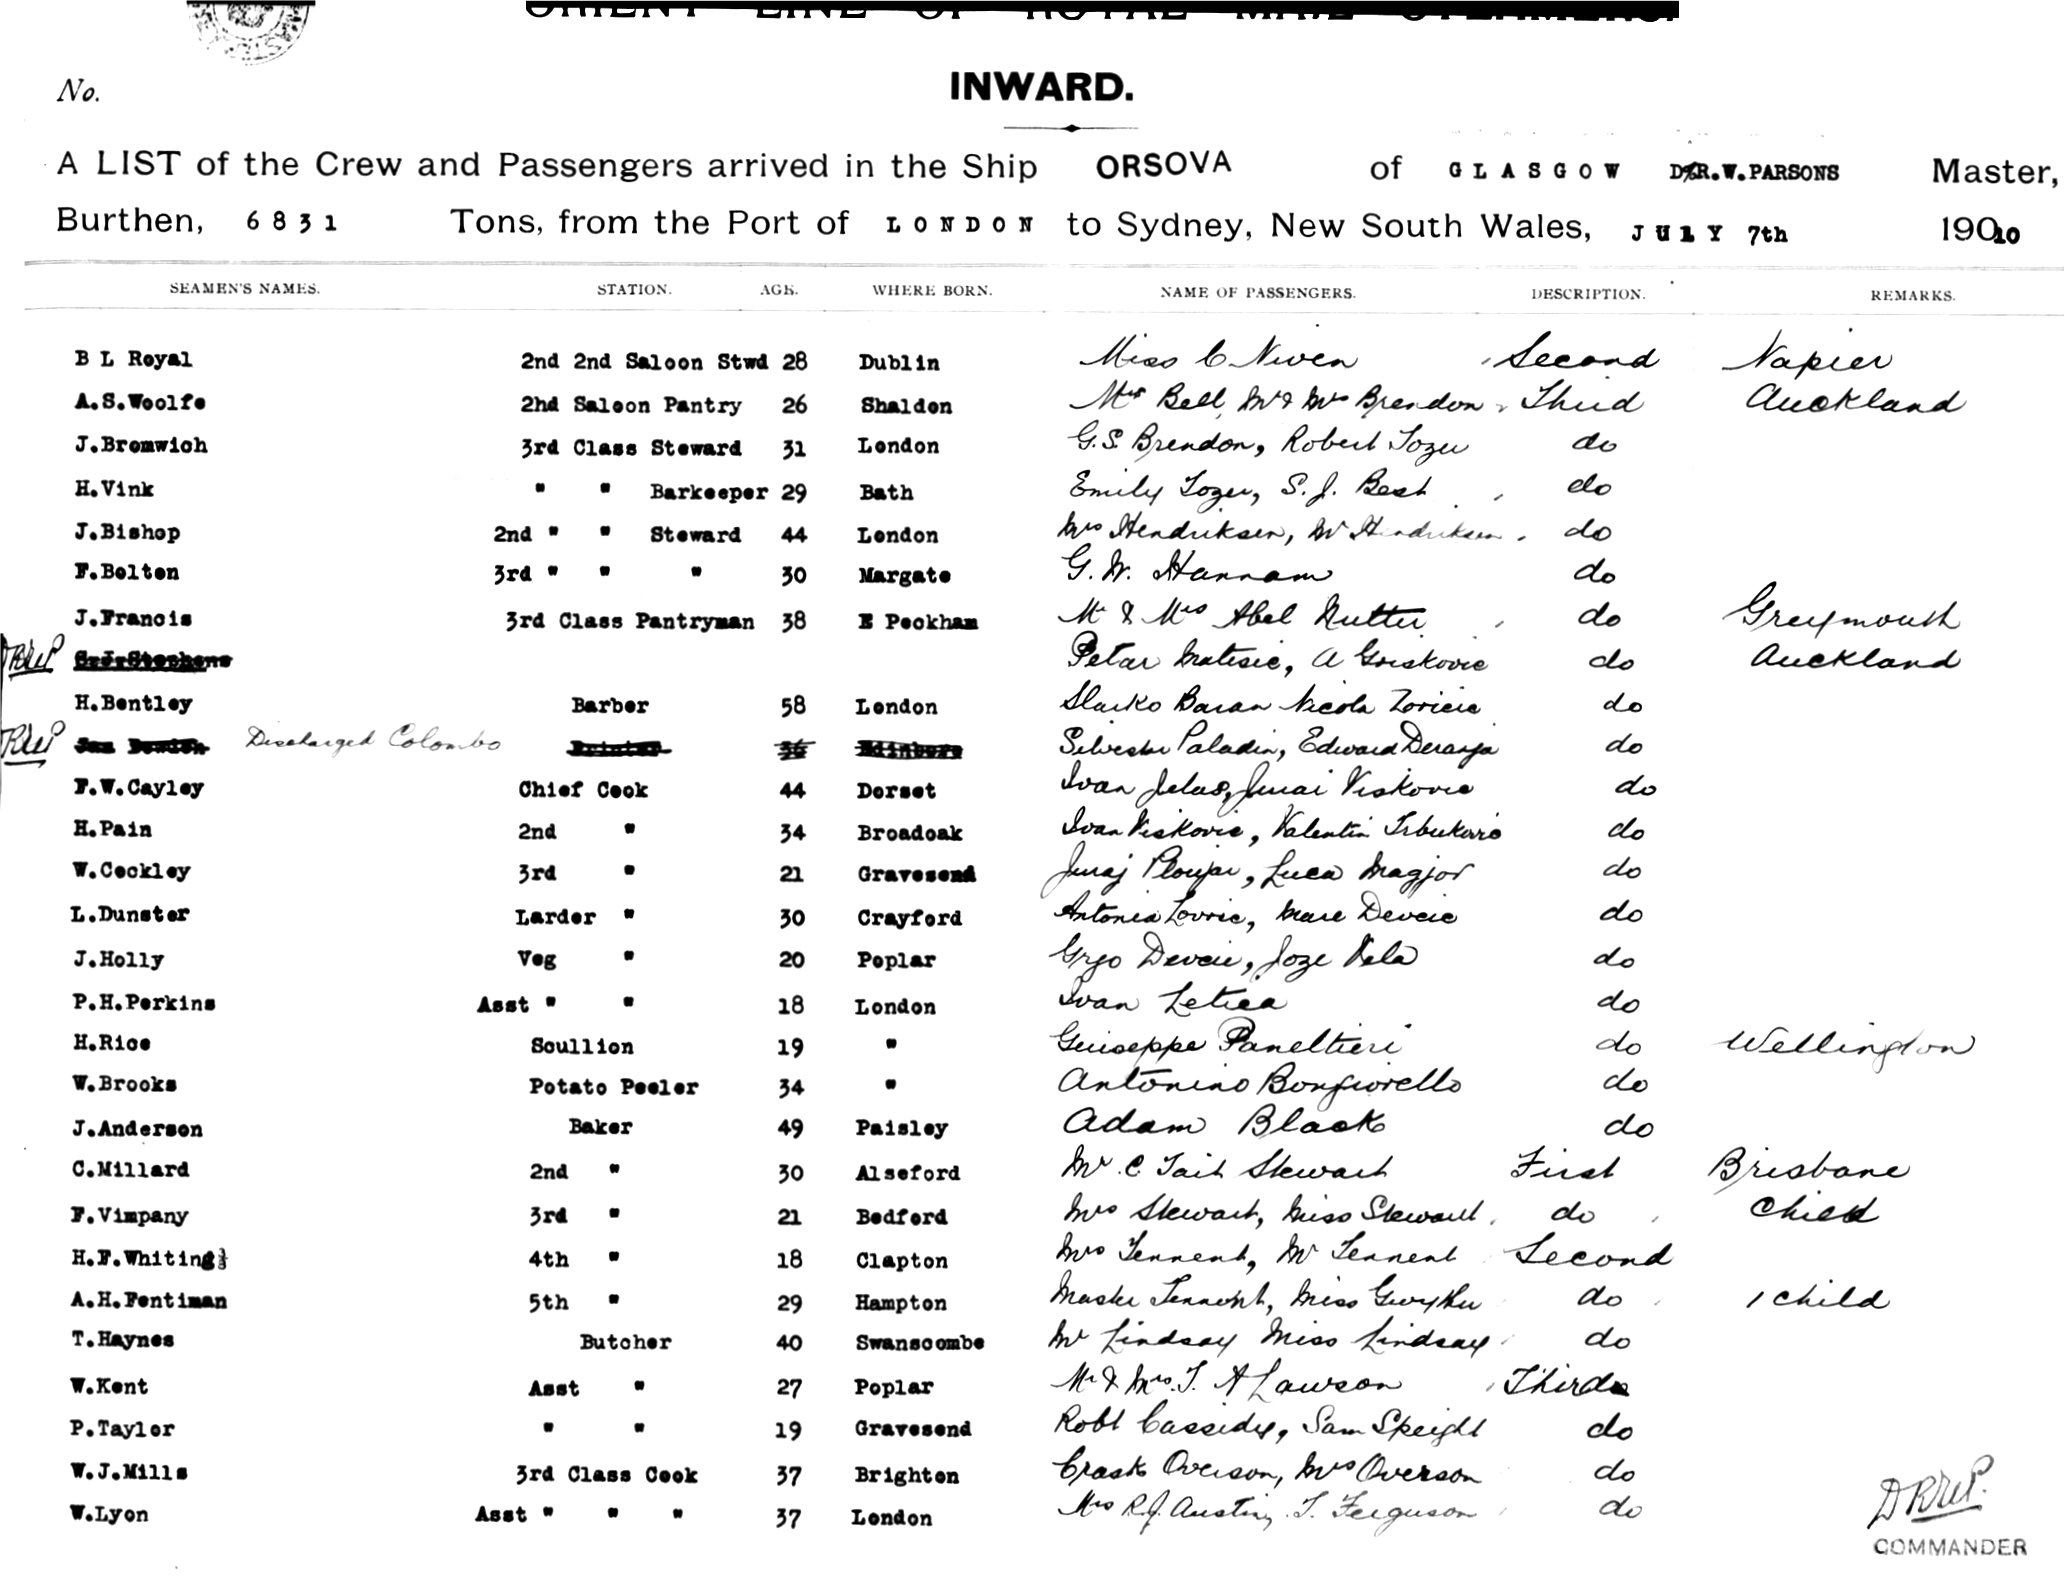 ORIENT LINE OF ROYAL MAIL STEAMERS.
No.
INWARD.
A LIST of the Crew and Passengers arrived in the Ship ORSOVA of GLASGOW D R.W.PARSONS Master,
Burthen, 6831 Tons, from the Port of LONDON to Sydney, New South Wales, JULY 7th 1910
SEAMEN'S NAMES. STATION. AGE. WHERE BORN. NAME OF PASSENGERS. DESCRIPTION. REMARKS.
B L Royal 2nd 2nd Saloon Stwd 28 Dublin Miss C Niven Second Napier
A.S.Woolfe 2nd Saloon Pantry 26 Shaldon Mr Bell, Mr & Mrs Brendon Third Auckland
J.Bromwich 3rd Class Steward 31 London G.S. Brendon, Robert Tozer do
H.Vink " " Barkeeper 29 Bath Emily Tozer, S.J. Best do
J.Bishop 2nd " " Steward 44 London Mrs Hendriksen, Mr Hendriksen do
F.Bolton 3rd " " " 30 Margate G.W. Hannam do
J.Francis 3rd Class Pantryman 38 E Peckham Mr & Mrs Abel Nutter do Greymouth
DRWP S.J.Stephens Petar Matisic, A Griskovic do Auckland
H.Bentley Barber 58 London Slavko Baran Nicola Zoricic do
DRWP Discharged Colombo Printer 36 Edinboro Silvester Paladin, Edward Deranja do
F.W.Cayley Chief Cook 44 Dorset Ivan Jelas, Jurai Viskovic do
H.Pain 2nd " 34 Broadoak Ivan Viskovic, Valentin Trbukovic do
W.Cockley 3rd " 21 Gravesend Juraj , Luca Magjor do
L.Dunster Larder " 30 Crayford Antonia Lovric, Mare Devcic do
J.Holly Veg " 20 Poplar Grgo Devcic, Joze Vela do
P.H.Perkins Asst " " 18 London Ivan Letica do
H.Rice Scullion 19 " Guiseppe Paneltieri do Wellington
W.Brooks Potato Peeler 34 " Antonino Bongiorello do
J.Anderson Baker 49 Paisley Adam Black do
C.Millard 2nd " 30 Alseford Mr C Tait Stewart First Brisbane
F.Vimpany 3rd " 21 Bedford Mrs Stewart, Miss Stewart do Child
H.F.Whiting 4th " 18 Clapton Mrs Tennent, Mr Tennent Second
A.H.Fentiman 5th " 29 Hampton Master Tennent, Miss Gwyther do 1 child
T.Haynes Butcher 40 Swanscombe Mr Lindsay Miss Lindsay do
W.Kent Asst " 27 Poplar Mr & Mrs. T. A Lawson Third
P.Taylor " " 19 Gravesend Robt Cassidy, Sam Speight do
W.J.Mills 3rd Class Cook 37 Brighton Crask Overson, Mrs Overson do
W.Lyon Asst " " " 37 London Mrs R.J. Austin, T. Ferguson do
DRWP.
COMMANDER